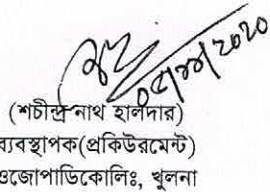 ০৫/১১/২০২০
(শচীন্দ্র নাথ হালদার)
ব্যবস্থাপক(প্রকিউরমেন্ট)
ওজোপাডিকোলিঃ, খুলনা